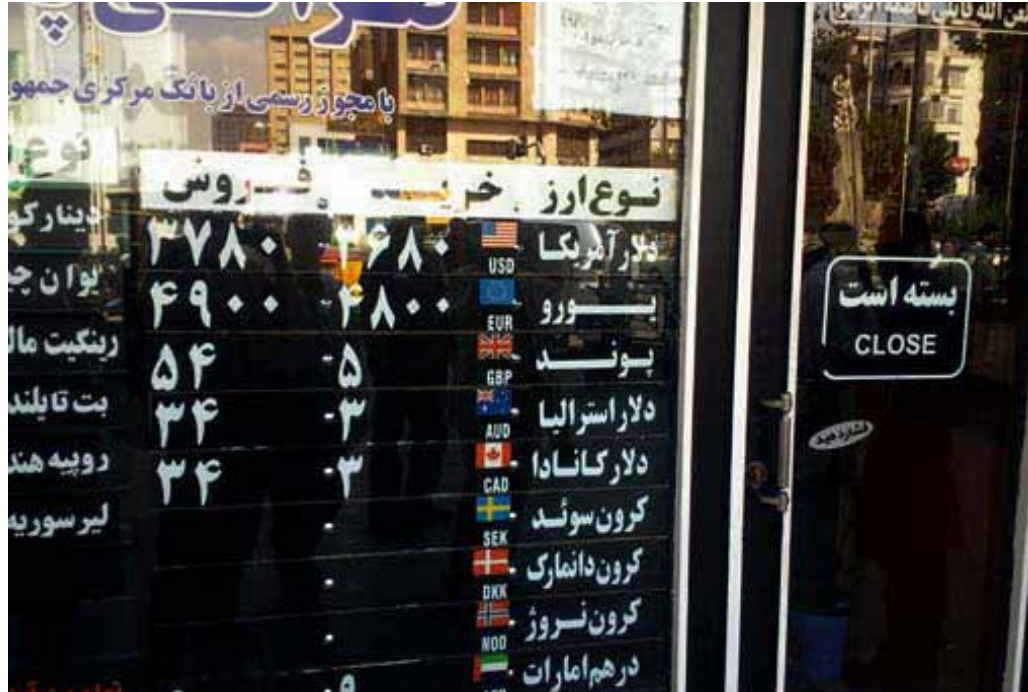 صرافی
با مجوز رسمی از بانک مرکزی جمهو
نوع ارز خرید فروش
دلار آمریکا USD ۳۶۸۰ ۳۷۸۰
یورو EUR ۴۸۰۰ ۴۹۰۰
پوند GBP ۵ ۵۴
دلار استرالیا AUD ۳ ۳۴
دلار کانادا CAD ۳ ۳۴
کرون سوئد SEK
کرون دانمارک DKK
کرون نروژ NOD
درهم امارات
نوع
دینار کو
یوان چی
رینگیت مال
بت تایلند
روپیه هند
لیر سوریه
بسته است
CLOSE
فشار دهید